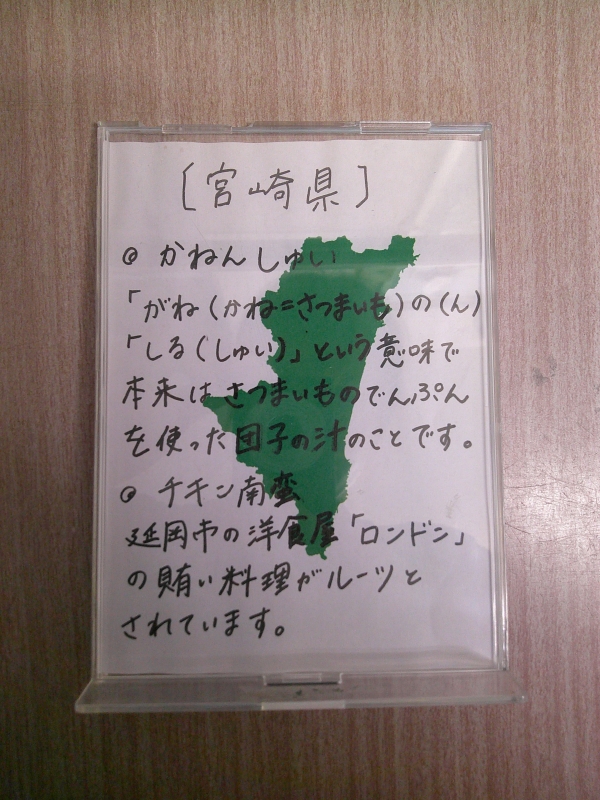 [宮崎県]
◎ かねんしゅい
「がね(かね=さつまいも)の(ん)
「しる(しゅい)」という意味で
本来はさつまいものでんぷん
を使った団子の汁のことです。
◎ チキン南蛮
延岡市の洋食屋「ロンドン」
の賄い料理がルーツと
されています。